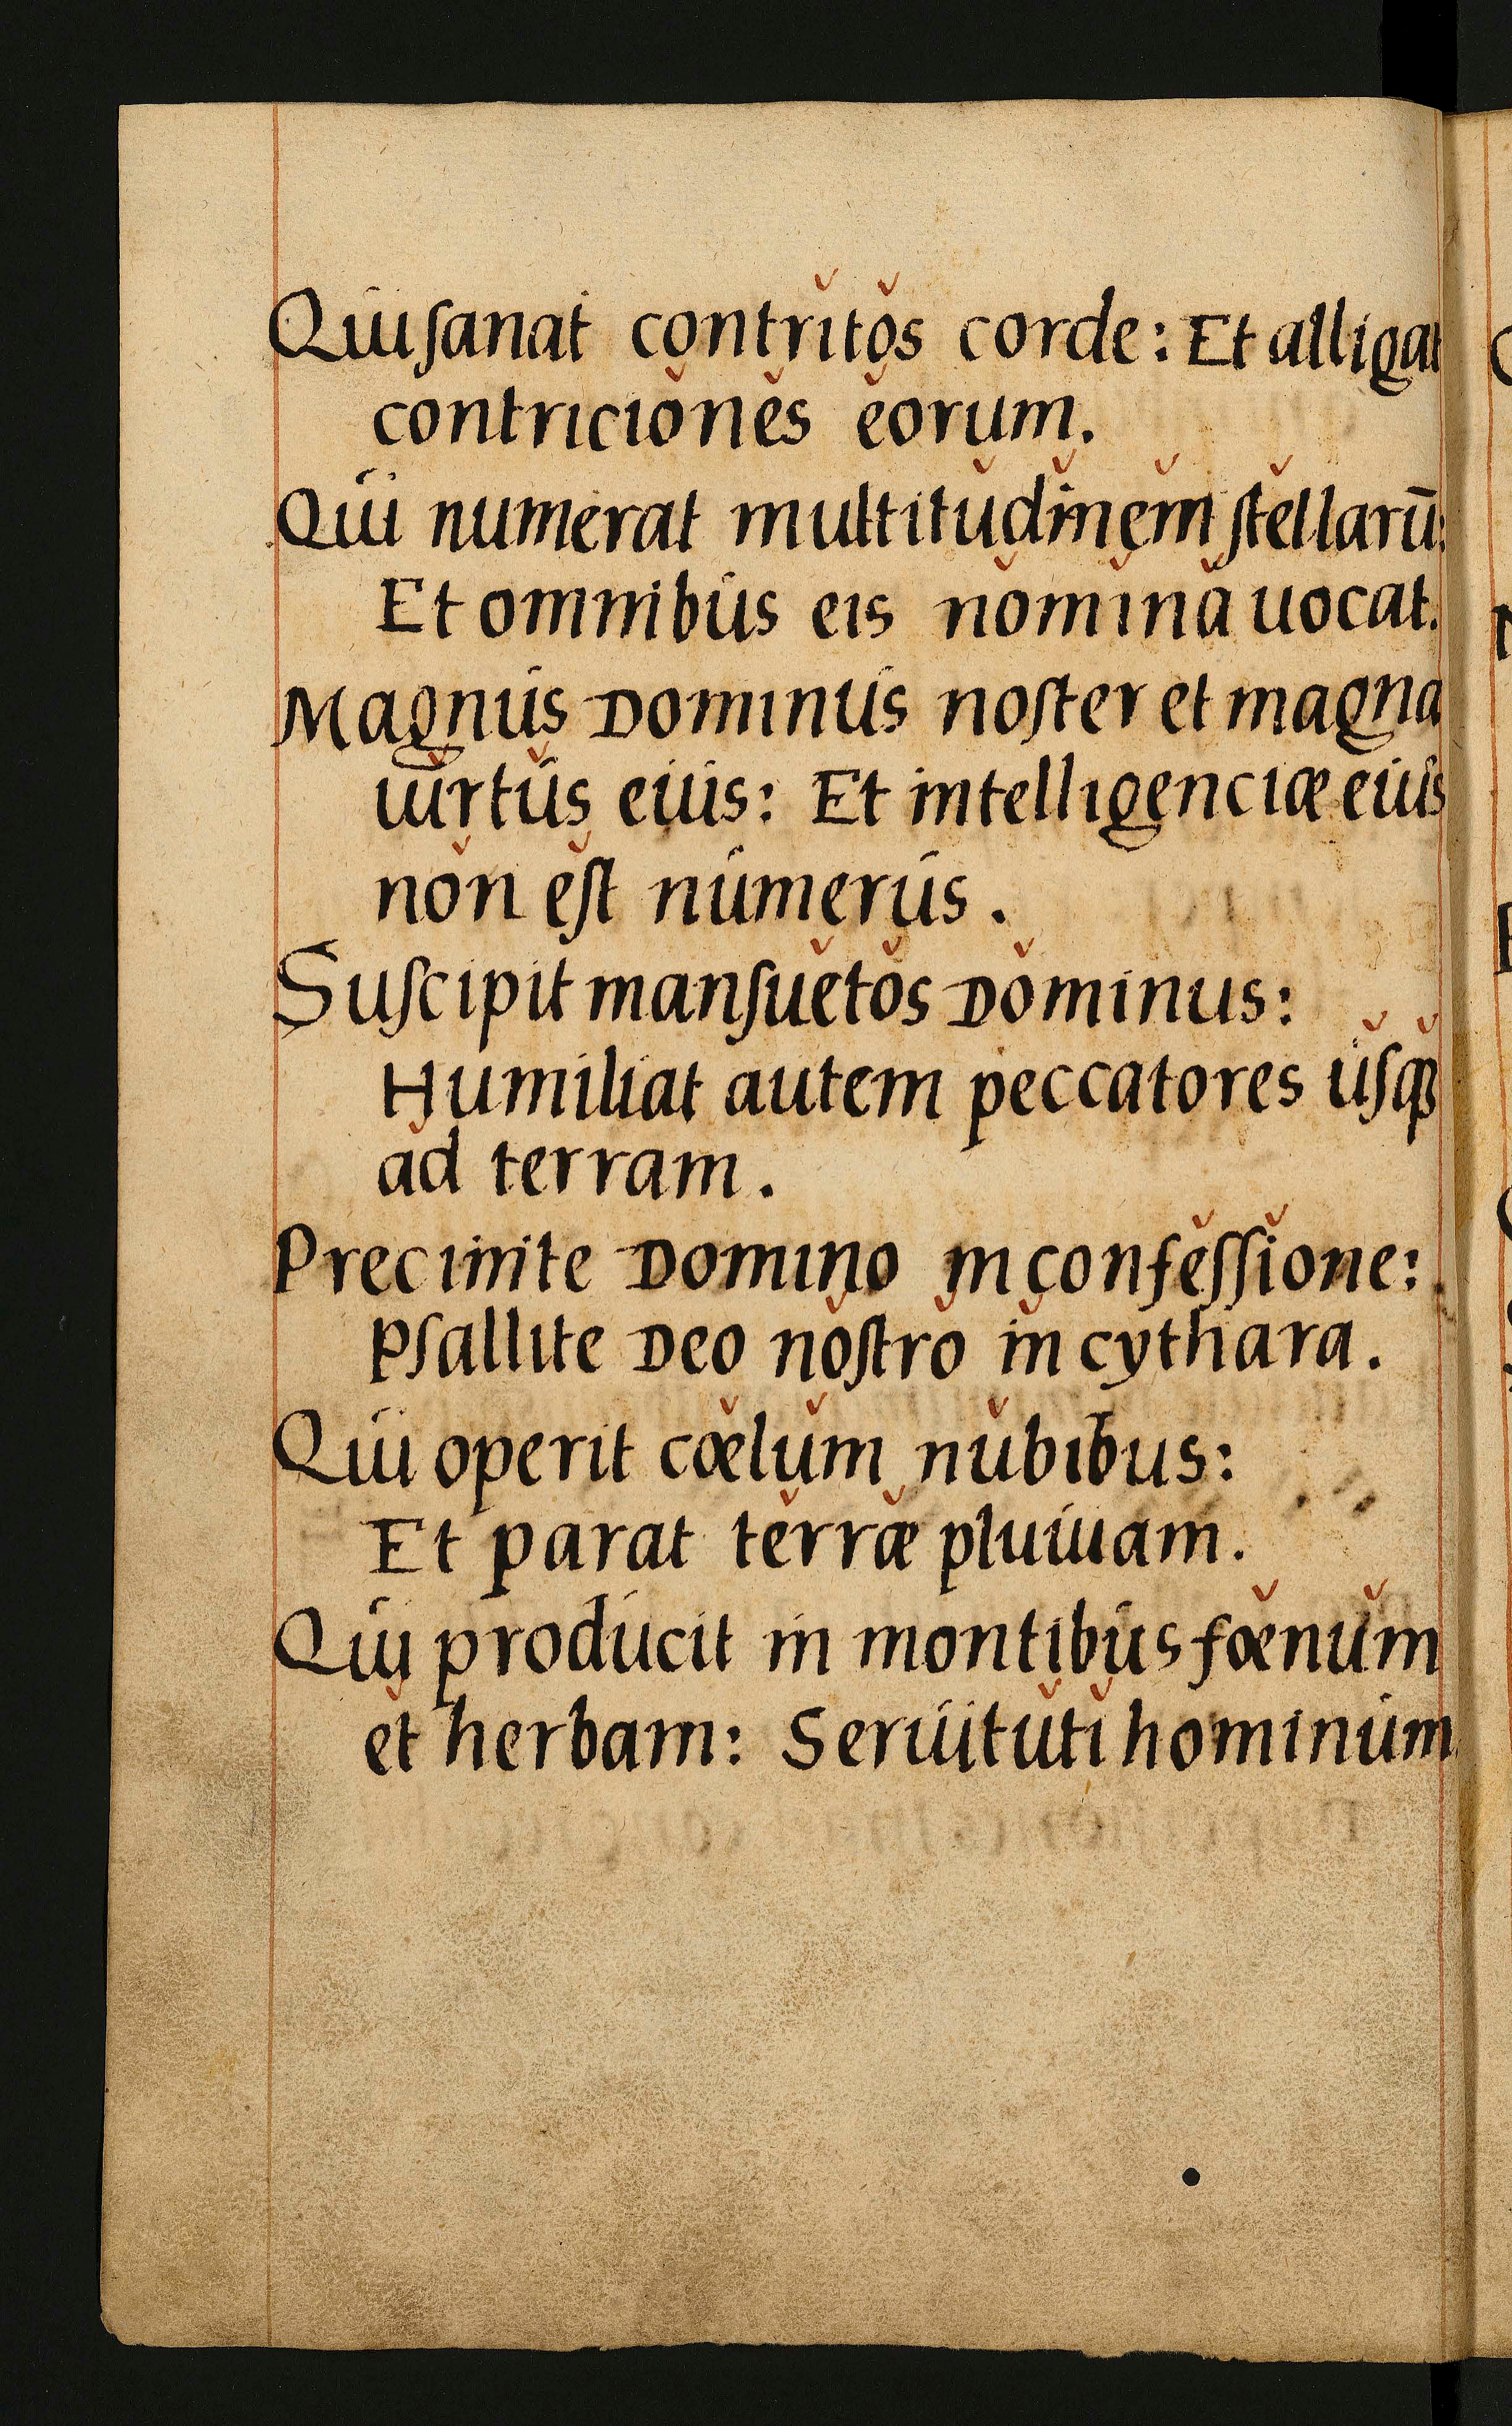 Qui ſanat contritos corde: Et alligat
contriciones eorum.
Qui numerat multitudinem ſtellarū:
Et omnibus eis nomina uocat.
Magnus Dominus noſter et magna
uirtus eius: Et intelligenciæ eius
non eſt numerus.
Suſcipit manſuetos Dominus:
Humiliat autem peccatores uſqꝫ
ad terram.
Precinite Domino in confeſſione:
Pſallite Deo noſtro in cythara.
Qui operit cœlum nubibus:
Et parat terræ pluuiam.
Qui producit in montibus fœnum
et herbam: Seruituti hominum